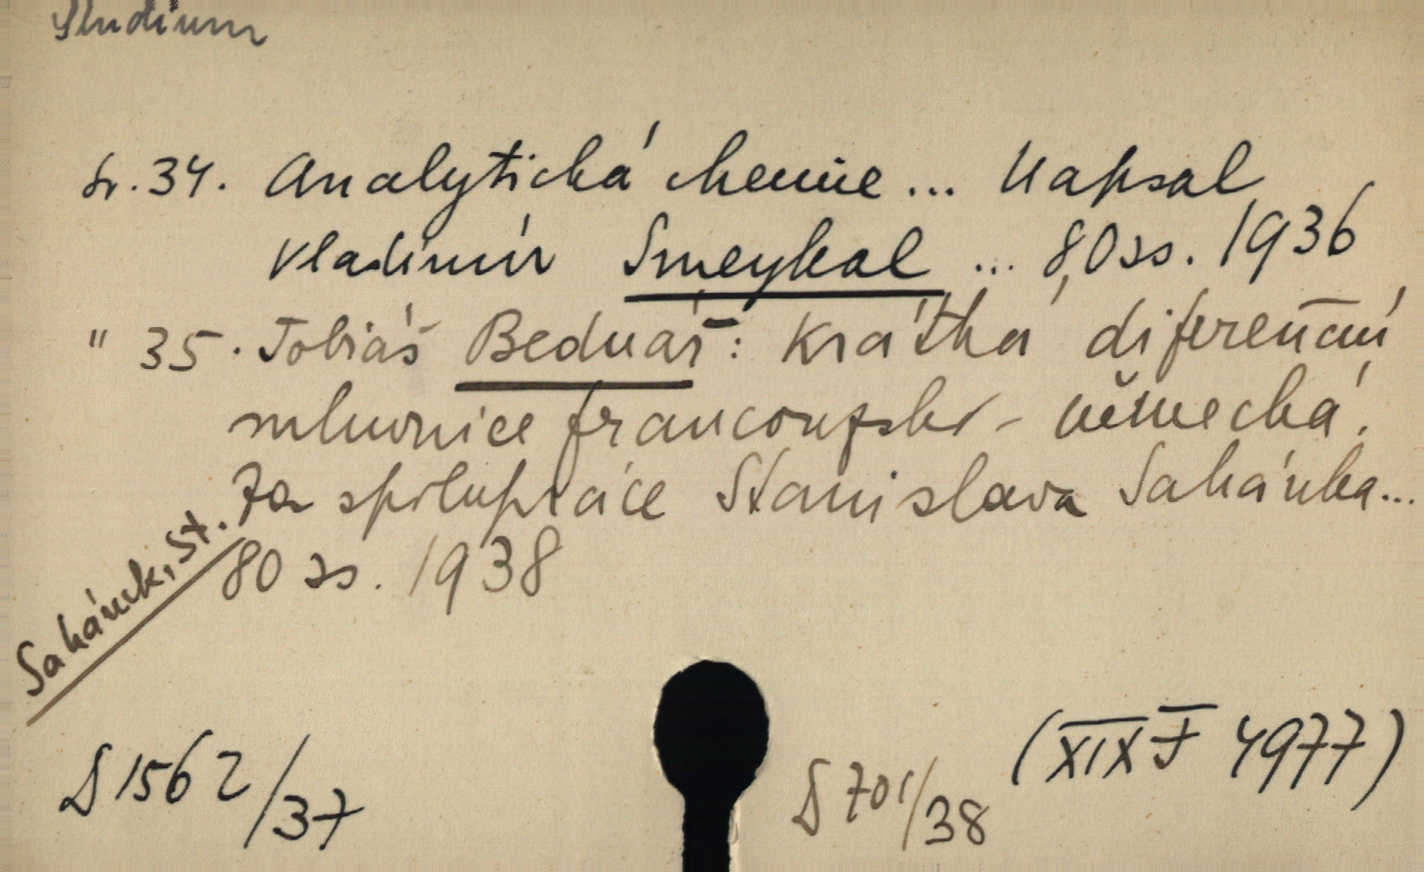 Studium
Sv. 34. Analytická chemie ... Napsal
Vladimír Smeykal ... 8,0 ss. 1936
" 35. Tobiáš Bednář: Krátká diferenční
mluvnice francouzsko-německá.
Za spolupráce Stanislava Sahánka...
80 ss. 1938
Sahánek, St.
D 1562/37
D 701/38
(XIX J 4977)